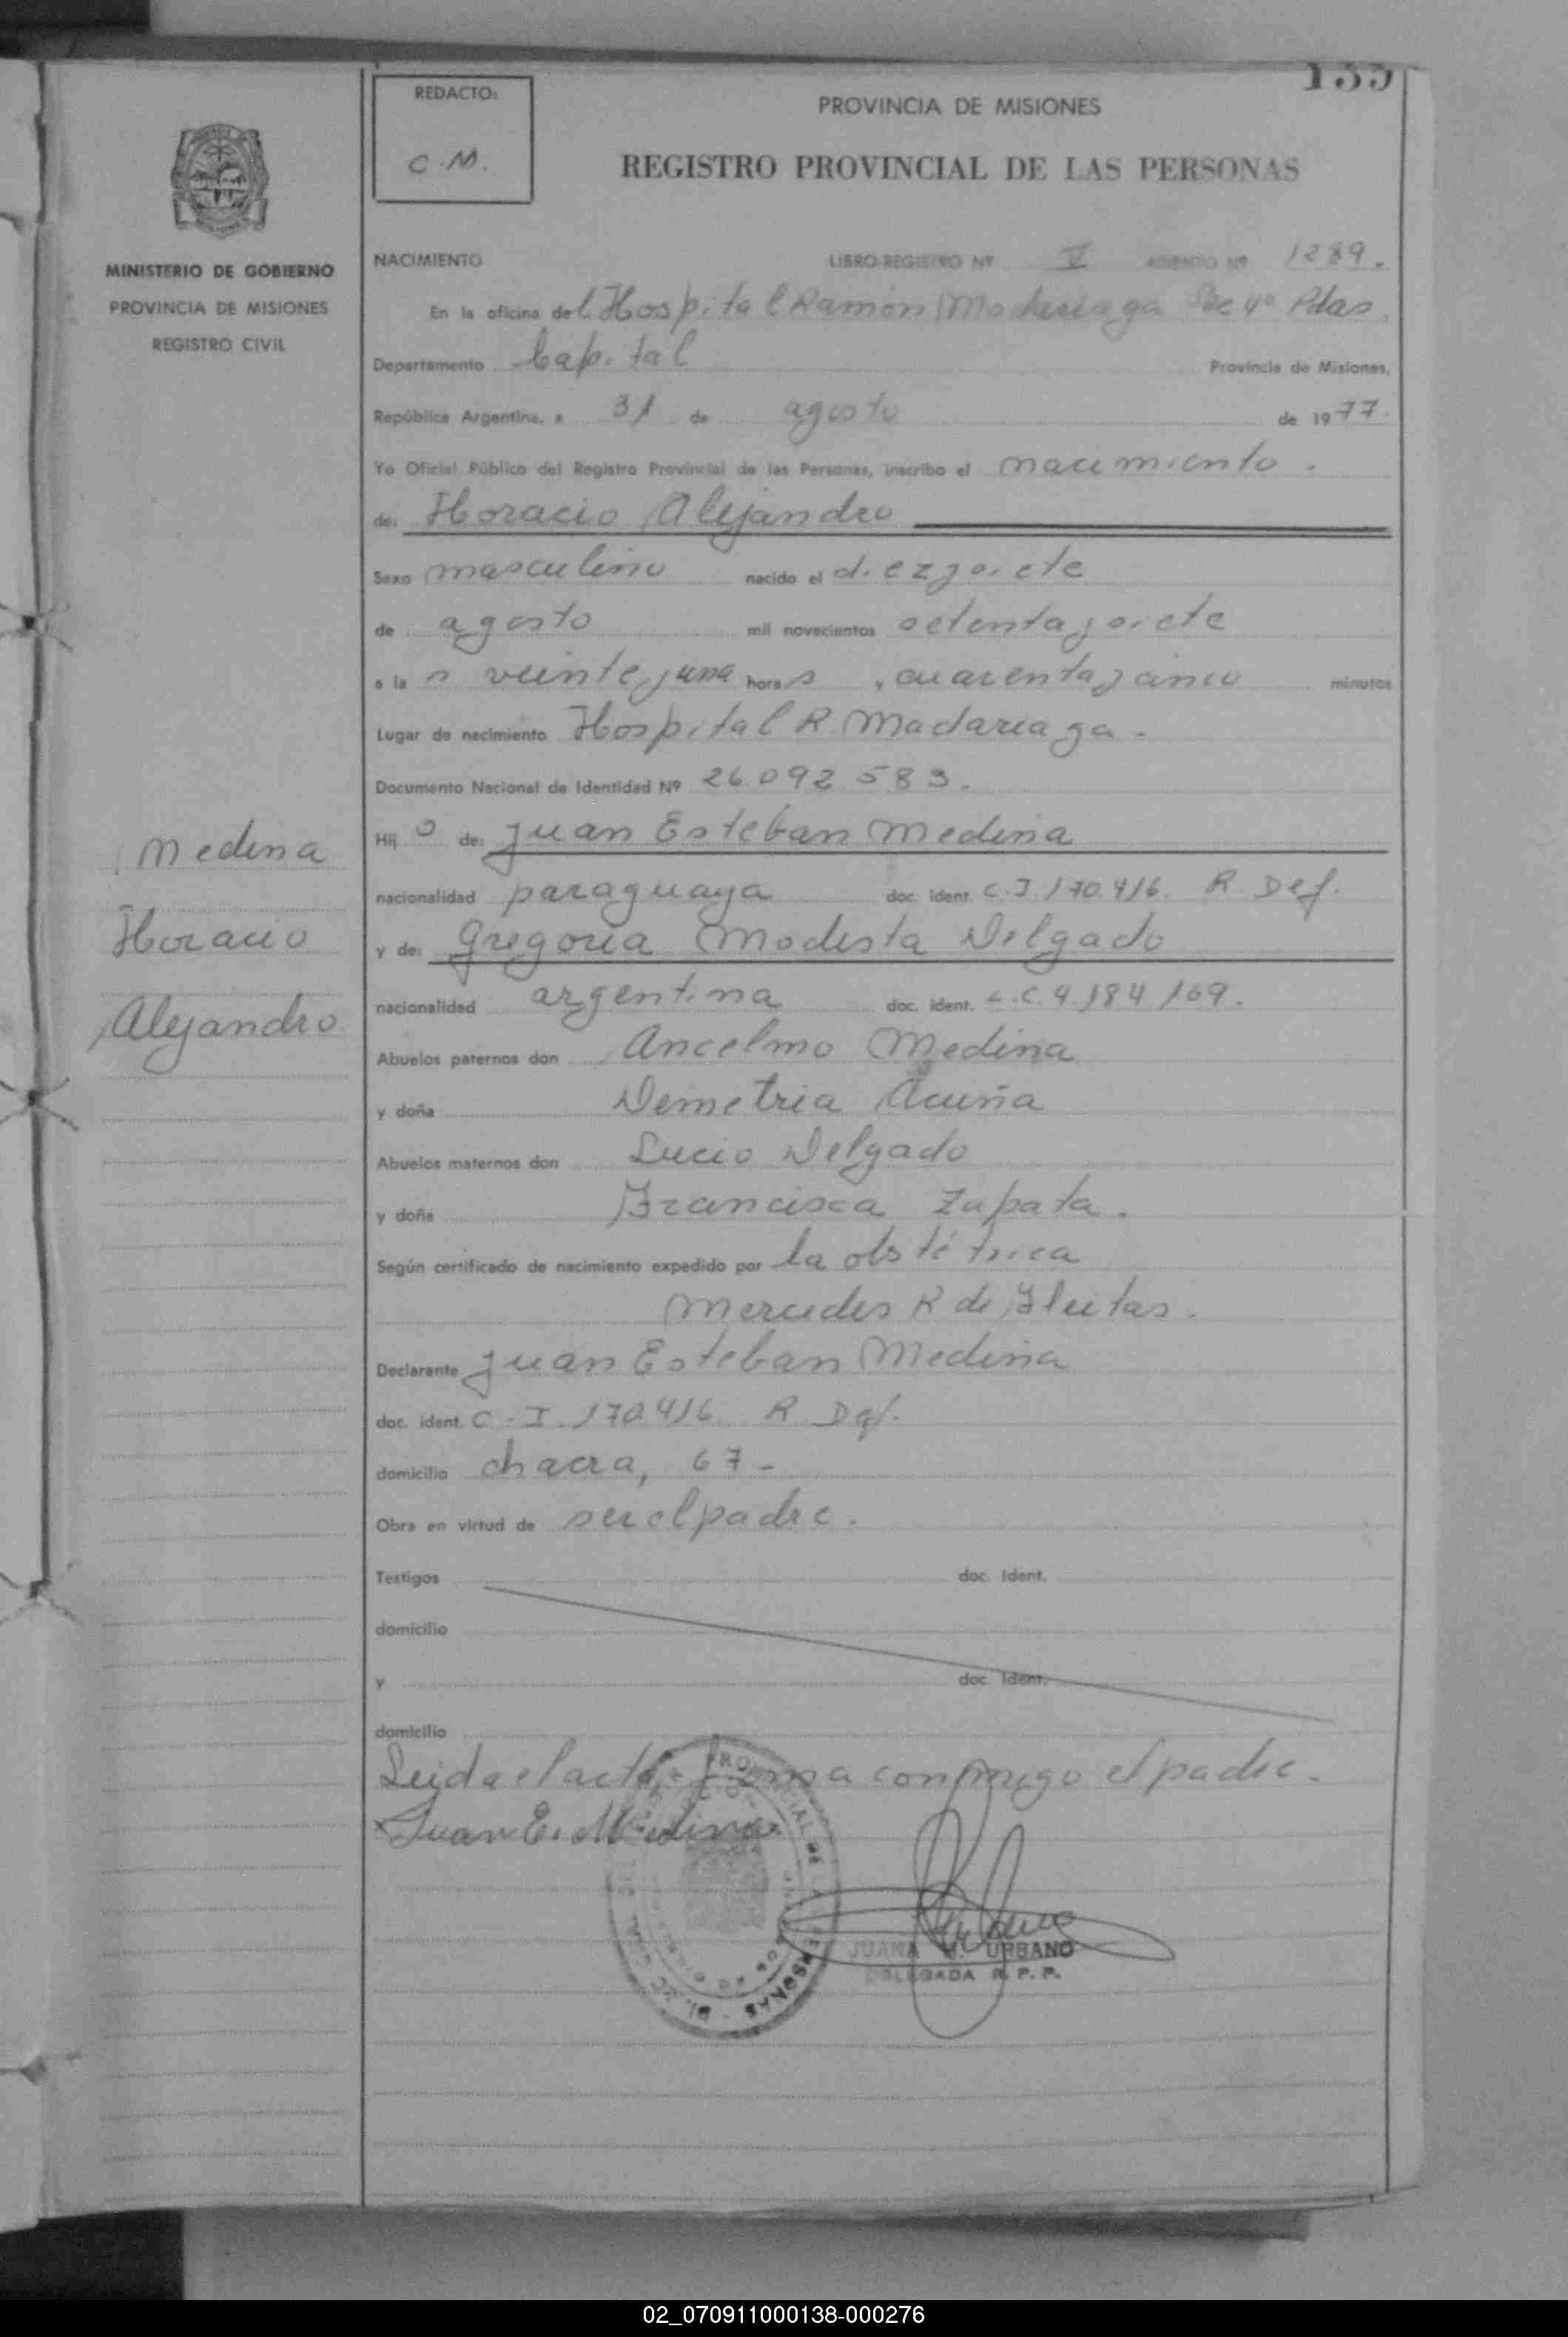 135
REDACTO:
C. M.
PROVINCIA DE MISIONES
REGISTRO PROVINCIAL DE LAS PERSONAS
MINISTERIO DE GOBIERNO
PROVINCIA DE MISIONES
REGISTRO CIVIL
NACIMIENTO LIBRO-REGISTRO Nº V ASIENTO Nº 1289.
En la oficina del Hospital Ramón Madariaga Sec 4ª Pdas.
Departamento Capital Provincia de Misiones,
República Argentina, a 31 de agosto de 1977.
Yo Oficial Público del Registro Provincial de las Personas, inscribo el nacimiento.
de: Horacio Alejandro
Sexo masculino nacido el diezysiete
de agosto mil novecientos setentaysiete
a las veinteyuna horas, cuarentaycinco minutos
Lugar de nacimiento Hospital R. Madariaga.
Documento Nacional de Identidad Nº 26.092.583.
Hijo de: Juan Esteban Medina
Medina
nacionalidad paraguaya doc. ident. C.I 170.416. R. Def.
Horacio
y de: Gregoria Modesta Delgado
nacionalidad argentina doc. ident. L.C. 4.184.169.
Alejandro
Abuelos paternos don Ancelmo Medina
y doña Demetria Acuña
Abuelos maternos don Lucio Delgado
y doña Francisca Zapata.
Según certificado de nacimiento expedido por la obstétrica
Mercedes R de Fleitas.
Declarante Juan Esteban Medina
doc. ident. C. I. 170.416. R Def.
domicilio chacra, 67-
Obra en virtud de ser el padre.
Testigos doc. ident.
domicilio
y doc. ident.
domicilio
Leida el acta, firma conmigo el padre.
Juan E. Medina
JUANA URBANO
DELEGADA R. P. P.
02_070911000138-000276